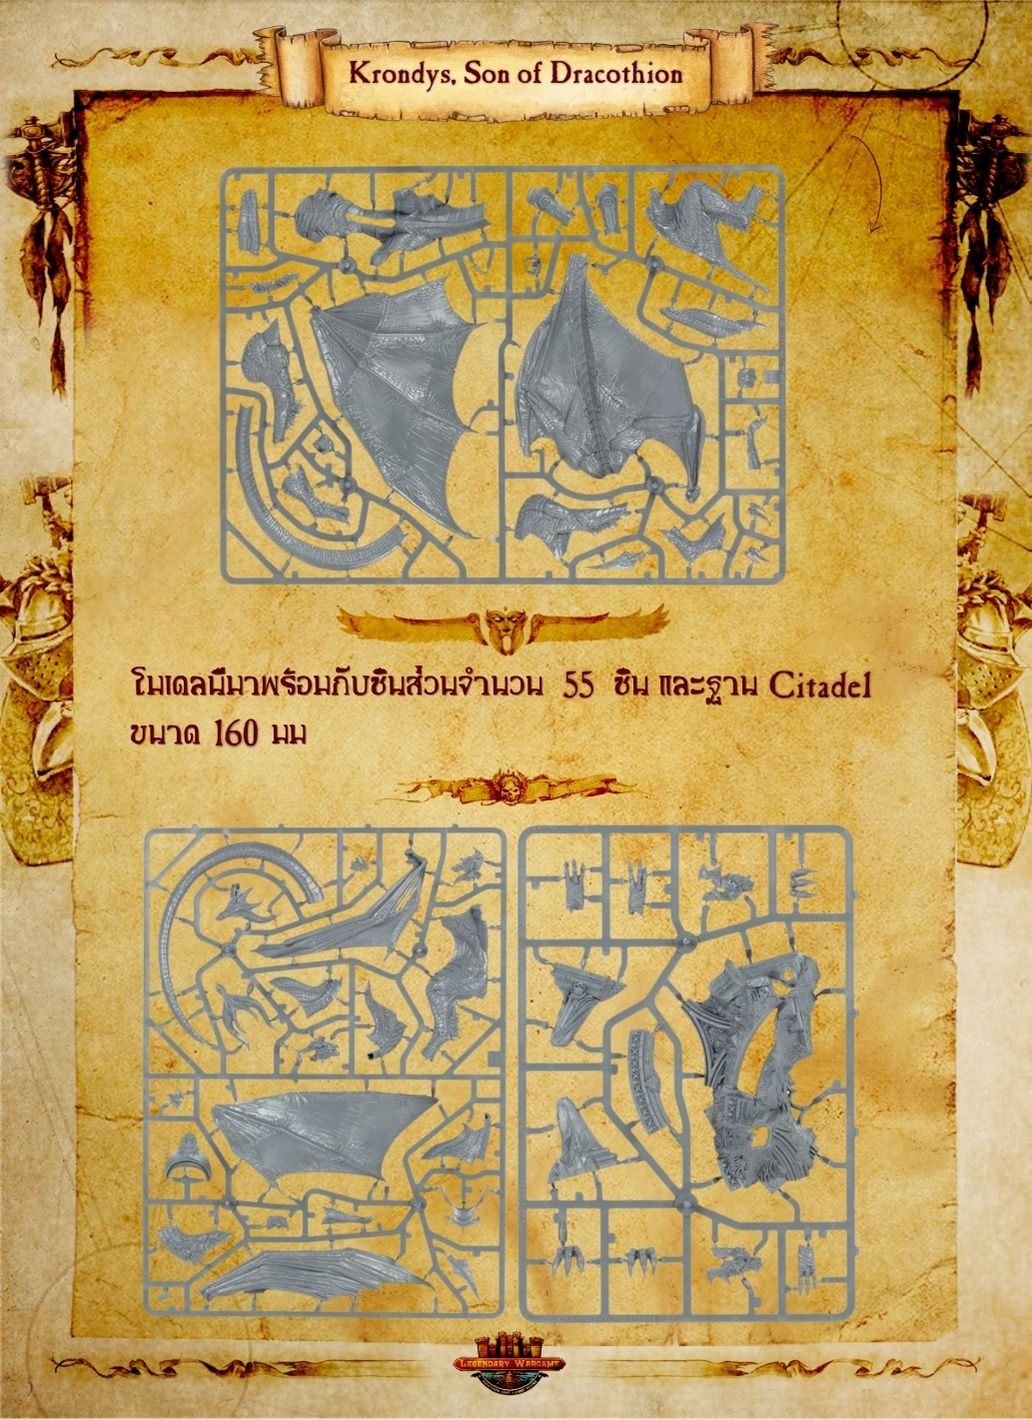 Krondys, Son of Dracothion
โมเดลนี้มาพร้อมกับชิ้นส่วนจำนวน 55 ชิ้น และฐาน Citadel
ขนาด 160 มม
LEGENDARY WARGAME